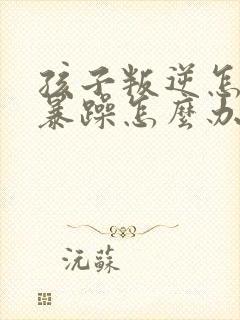 孩子叛逆怎
暴躁怎麼办
沅蘇